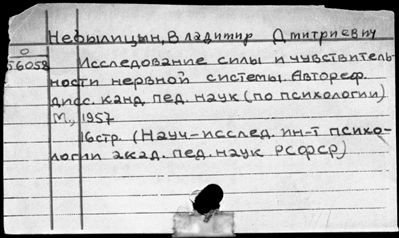 Небылицын, Владимир Дмитриевич
О
56058
Исследование силы и чувствитель-
ности нервной системы. Автореф.
дисс. канд. пед. наук (по психологии)
М., 1957
16 стр. (Науч-исслед. ин-т психо-
логии акад. пед. наук РСФСР)